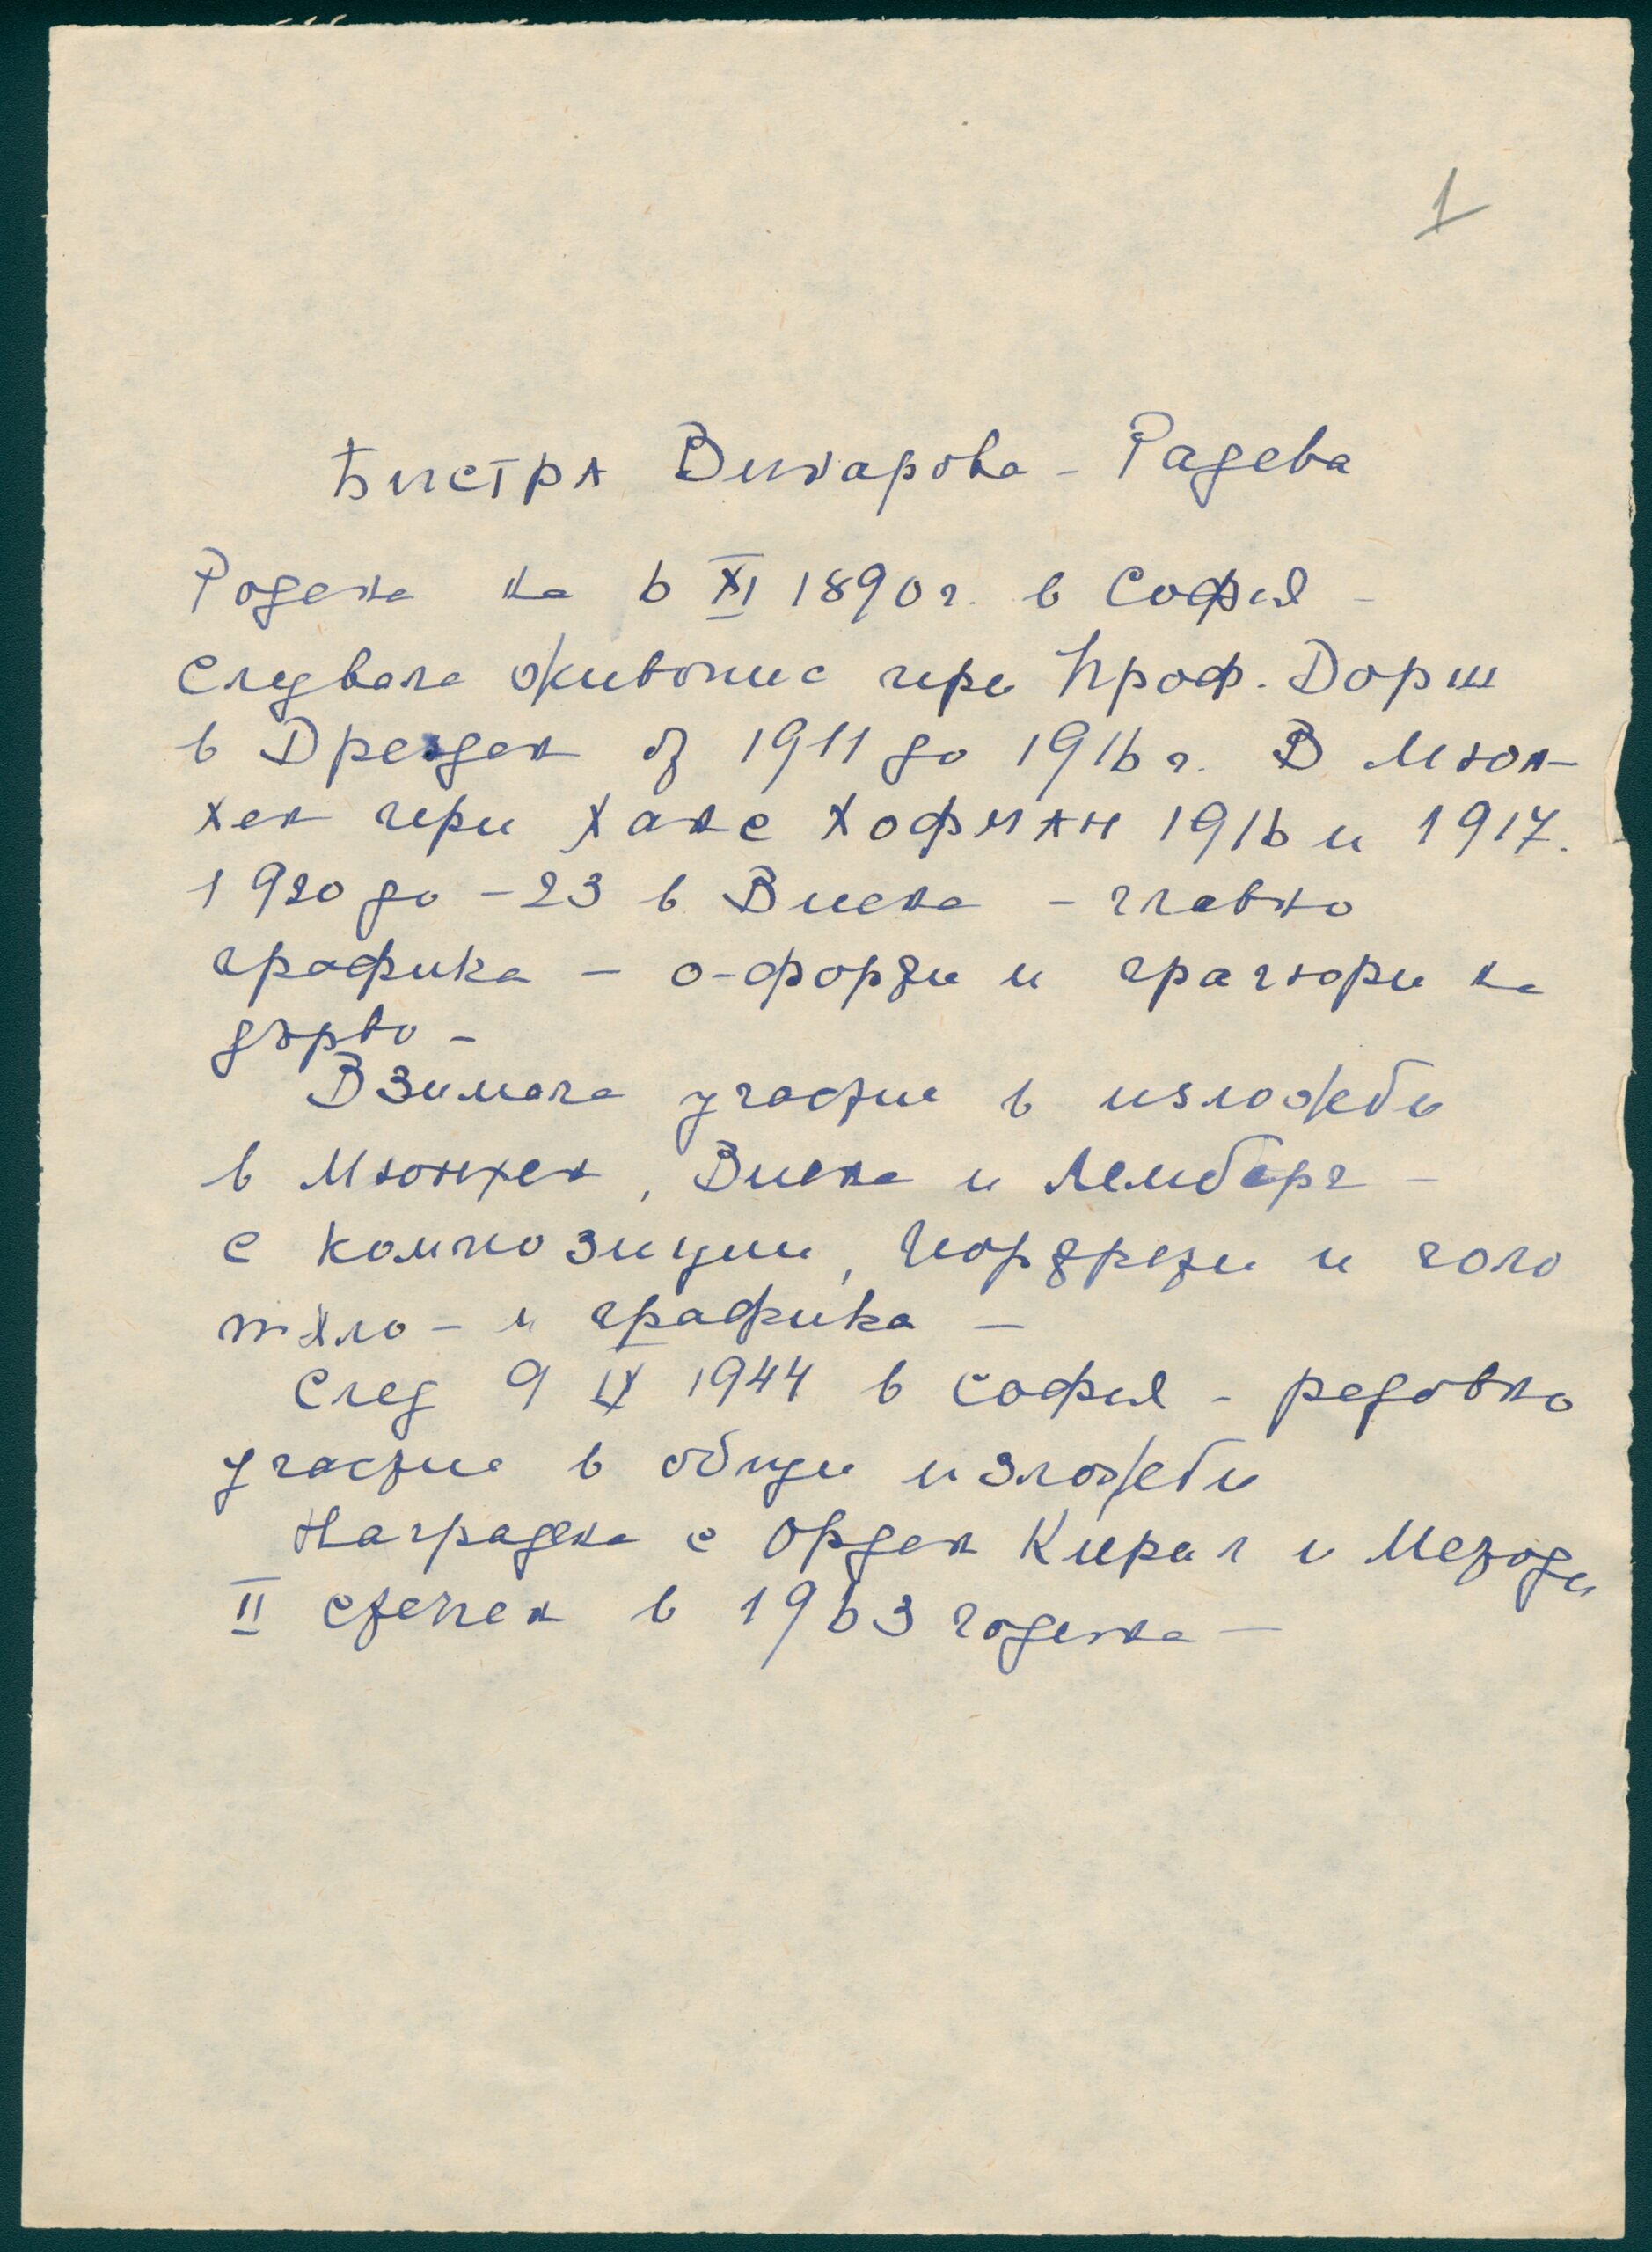 1
Бистра Винарова - Радева
Родена на 6 XI 1890 г. в София -
Следвала живопис при Проф. Дорш
в Дрезден от 1911 до 1916 г. В Мюн-
хен при Ханс Хофман 1916 и 1917.
1920 до - 23 в Виена - главно
графика - о-форти и гравюри на
дърво -
Взимала участие в изложби
в Мюнхен, Виена и Лемберг -
с композиции, портрети и голо
тяло - и графика -
След 9 IX 1944 в София - редовно
участие в общи изложби
Наградена с Орден Кирил и Методи
II степен в 1963 година -